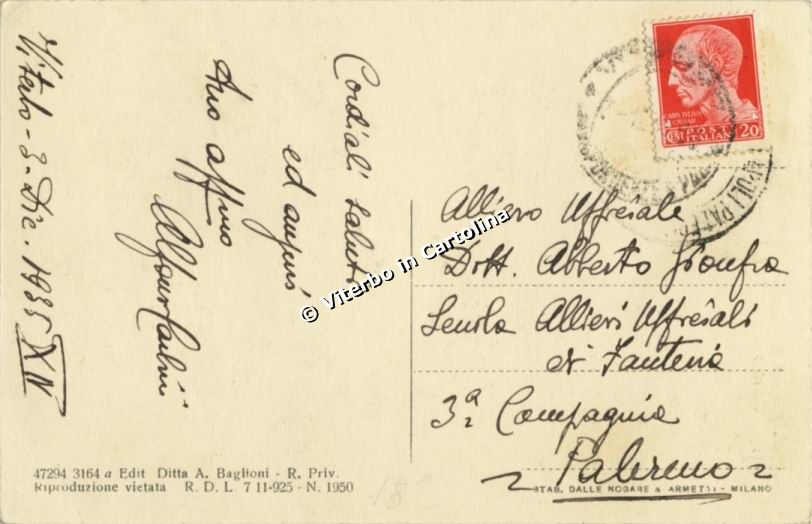 Viterbo - 3 - Dic. 1935 XIV
Cordiali saluti
ed auguri
tuo affmo
Allievo Ufficiale
Dott. Abberto
Scuola Allievi Ufficiali
di Fanteria
3ª Compagnia
Palermo
CAIVS IVLIVS
CAESAR
CENT. POSTE ITALIANE 20
© Viterbo in Cartolina
47294 3164 a Edit Ditta A. Baglioni - R. Priv.
Riproduzione vietata R. D. L. 7 11-925 - N. 1950
STAB. DALLE NOGARE & ARMETTI - MILANO